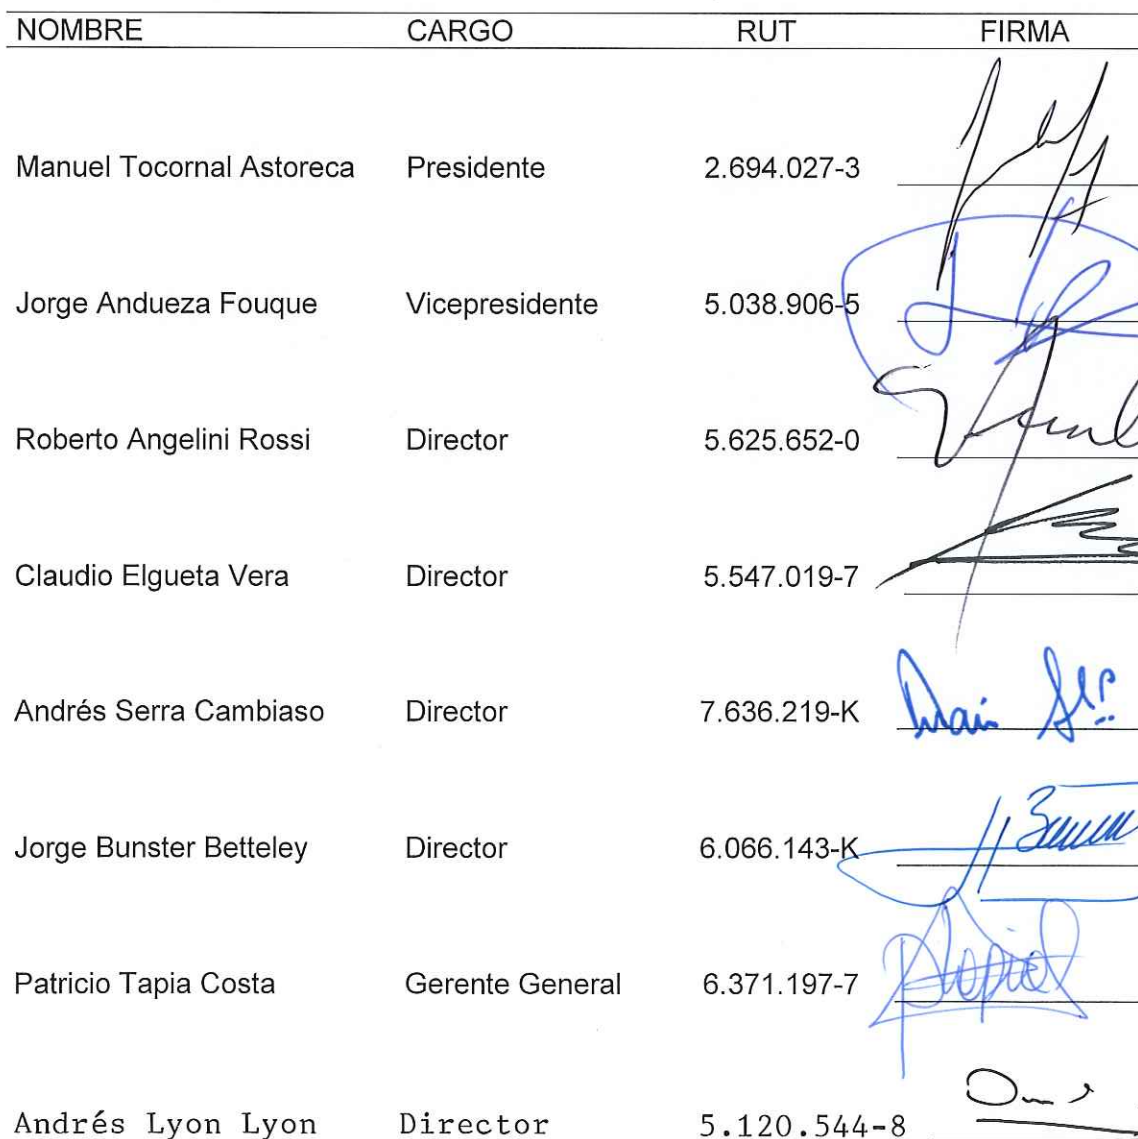 NOMBRE CARGO RUT FIRMA
Manuel Tocornal Astoreca Presidente 2.694.027-3
Jorge Andueza Fouque Vicepresidente 5.038.906-5
Roberto Angelini Rossi Director 5.625.652-0
Claudio Elgueta Vera Director 5.547.019-7
Andrés Serra Cambiaso Director 7.636.219-K
Jorge Bunster Betteley Director 6.066.143-K
Patricio Tapia Costa Gerente General 6.371.197-7
Andrés Lyon Lyon Director 5.120.544-8